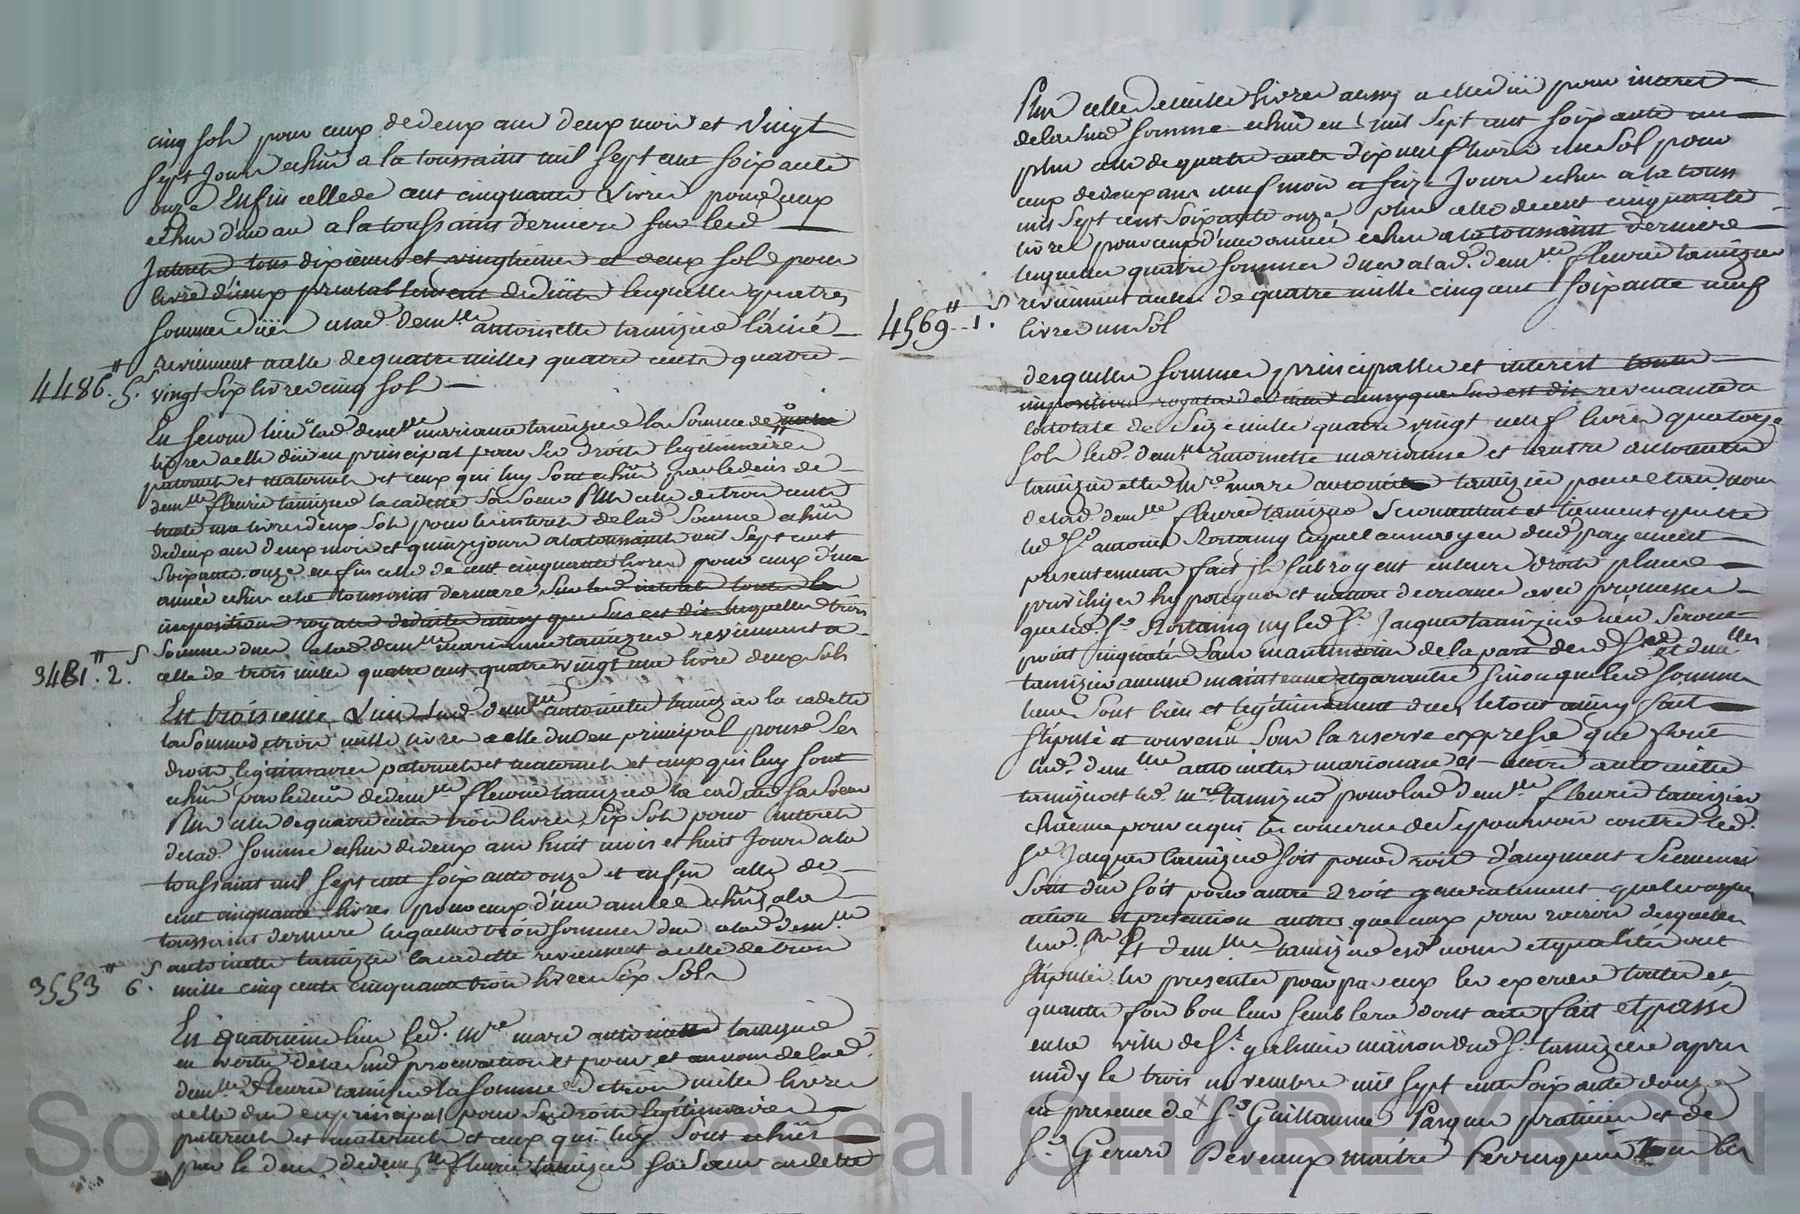 cinq sols pour ceux de deux ans deux mois et vingt
sept jours echus a la toussaint mil sept cent soixante
onze Enfin celle de cent cinquante Livres pour ceux
echus d'un an a la toussaint derniere sur led.
Interets tous dixiemes et vingtiemes et deux sols pour
livre d'iceux prealablement deduits lesquelles quatres
sommes dües a lad. demlle antoinette tamizier l'ainé
reviennent a celle de quatre milles quatre cents quatre
4486. 5. vingt six livres cinq sol
En second lieu a lad. demlle marianne tamizier la somme de
livres a elle düe en principal pour ses droits legitimaires
paternels et maternels et ceux qui luy sont echus par le deces de
demlle fleurie tamizier la cadette sa soeur Plus celle de trois cents
trente une livres deux sols pour les interets de lad. somme echus
de deux ans deux mois et quinze jours a la toussaint mil sept cent
soixante onze enfin celle de cent cinquante livres pour ceux d'une
année echus a la toussaint derniere sur lesd. interets toutes les
impositions royales deduites ainsy que sus est dit lesquelles trois
sommes dues a lad. demlle marianne tamizier reviennent a
3481. 2. celle de trois mille quatre cent quatre vingt une livre deux sols
En troisieme Lieu a lad. demlle antoinette tamizier la cadette
la somme de trois mille livres a elle due en principal pour ses
droits legitimaires paternels et maternels et ceux qui luy sont
echus par le deces de demlle fleurie tamizier la cadette sa soeur
Plus celle de quatre cents trois livres six sols pour interets
de lad. somme echus de deux ans huit mois et huit jours a la
toussaint mil sept cent soixante onze et enfin celle de
cent cinquante livres pour ceux d'une année echus a la
toussaint derniere lesquelles trois sommes dues a lad. demlle
antoinette tamizier la cadette reviennent a celle de trois
3553 6. mille cinq cents cinquante trois livres six sols
En quatrieme lieu led. Mre marc antoine tamizier
en vertu de la sud. procuration et pour et au nom de lad.
demlle fleurie tamizier la somme de trois mille livres
a elle due en principal pour ses droits legitimaires
paternels et maternels et ceux qui luy sont echus
par le deces de demlle fleurie tamizier sa soeur cadette
Plus celle de mille livres aussy a elle düe pour interet
de la sud. somme echus en mil sept cent soixante un
plus celle de quatre cents dix neuf livres un sol pour
ceux de deux ans neuf mois et seize jours echus a la touss.
mil sept cent soixante onze, plus celle de cent cinquante
livres pour ceux d'une année echus a la toussaint derniere
lesquelles quatre sommes dues a lad. demlle fleurie tamizier
reviennent a celle de quatre mille cinq cent soixante neuf
4569. 1. livres un sol
desquelles sommes principalles et interest toutes
impositions royales deduites ainsy que sus est dit revenantes a
la totale de seize mille quatre vingt neuf livres quatorze
sols lesd. demlles antoinette marianne et autre antoinette
tamizier et led. Mre marc antoine tamizier pour et au nom
de lad. demlle fleurie tamizier se contentent et tiennent quitte
led. Sr. antoine Rostaing lequel au moyen dud. payement
presentement fait ils subrogent en leurs droits place
privileges hypoteques et nature de creance avec promesse
que led. Sr Rostaing ny led. Sr. Jacques tamizier n'en seront
point inquietés sans maintenüe de la part desd. Sr et demlles
tamizier aucune maintenue et garantie sinon que lesd. sommes
leurs sont bien et légitimement dues le tout ainsy fait
stipulé et convenu sous la reserve expresse que font
lesd. demlles antoinette marianne et autre antoinette
tamizier et led. Mre tamizier pour lad. demlle fleurie tamizier
chacune pour ce qui les concerne de se pourvoir contre led.
Sr Jacques tamizier soit pour droit d'augment
sont dus soit pour autre droit generalement quelconques
action et pretention autres que ceux pour raison desquelles
lesd. Sr et demlles tamizier esd. noms et qualités ont
stipulé les presentes pour par eux les exercer toutes et
quantes fois bon leur semblera dont acte fait et passé
en la ville de St. galmier maison dud. Sr. tamizier apres
midy le trois novembre mil sept cent soixante douze
en presence de Sr Guillaume Pasquier praticien et de
Sr. Gerard Deveaux maitre Perruquier tous les
Source AD Pascal CHAREYRON